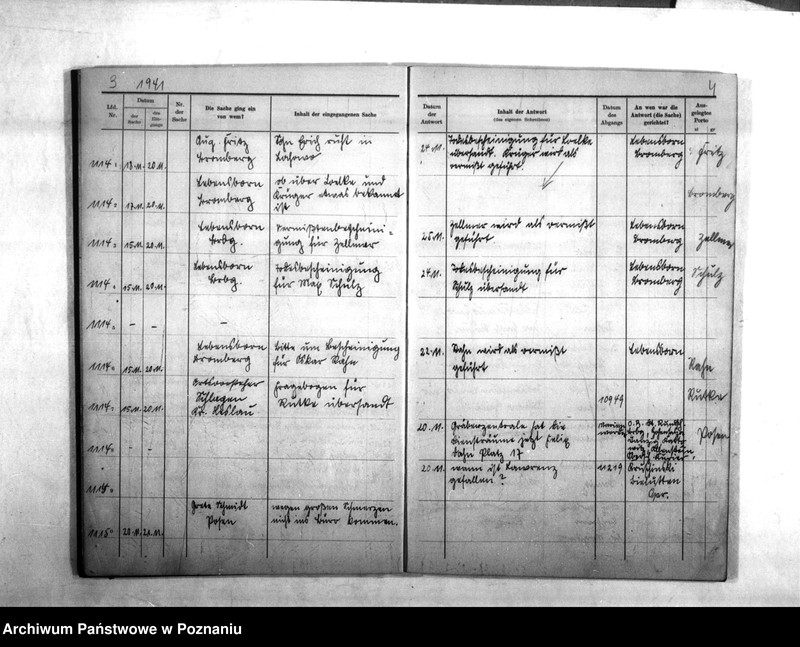 3 1941
Lfd. Nr.
Datum
der Sache
des Einganges
Nr. der Sache
Die Sache ging ein von wem?
Inhalt der eingegangenen Sache
1114.
13.11. 20.11.
Aug. Fritz
Bromberg
Sohn Erich ruht in
1114.
17.11. 20.11.
Lebensborn
Bromberg
ob über Loelke und
Krüger etwas bekannt
ist
1114.
15.11. 20.11.
Lebensborn
Brbg.
Vermißtenbeschein-
gung für Zellmer
1114.
15.11. 20.11.
Lebensborn
Brbg.
Todesbescheinigung
für Max Schulz
1114.
– – –
1114.
15.11. 20.11.
Lebensborn
Bromberg
Bitte um Bescheinigung
für Oskar Rahn
1114.
15.11. 20.11.
Ortsvorsteher
Schlegen
Kr. Leslau
Fragebogen für
Rutke übersandt
1114.
– –
1115.
1115.
20.11. 21.11.
Grete Schmidt
Posen
wegen großen Schmerzen
nicht ins Büro kommen.
4
Datum der Antwort
Inhalt der Antwort
(des eigenen Schreibens)
Datum des Abganges
An wen war die Antwort (die Sache) gerichtet?
Ausgelegtes Porto
24.11.
Todesbescheinigung für Loelke
übersandt. Krüger wird als
vermißt geführt.
Lebensborn
Bromberg
Fritz
Bromberg
25.11.
Zellmer wird als vermißt
geführt
Lebensborn
Bromberg
Zellmer
24.11.
Todesbescheinigung für
Schulz übersandt
Lebensborn
Bromberg
Schulz
22.11.
Rahn wird als vermißt
geführt
Lebensborn
Rahn
10949
Rutke
20.11.
Gräberzentrale hat die
Diensträume jetzt Felix
Dahn Platz 17
Posen
20.11.
wann ist Lawrenz
gefallen?
11219
Archiwum Państwowe w Poznaniu